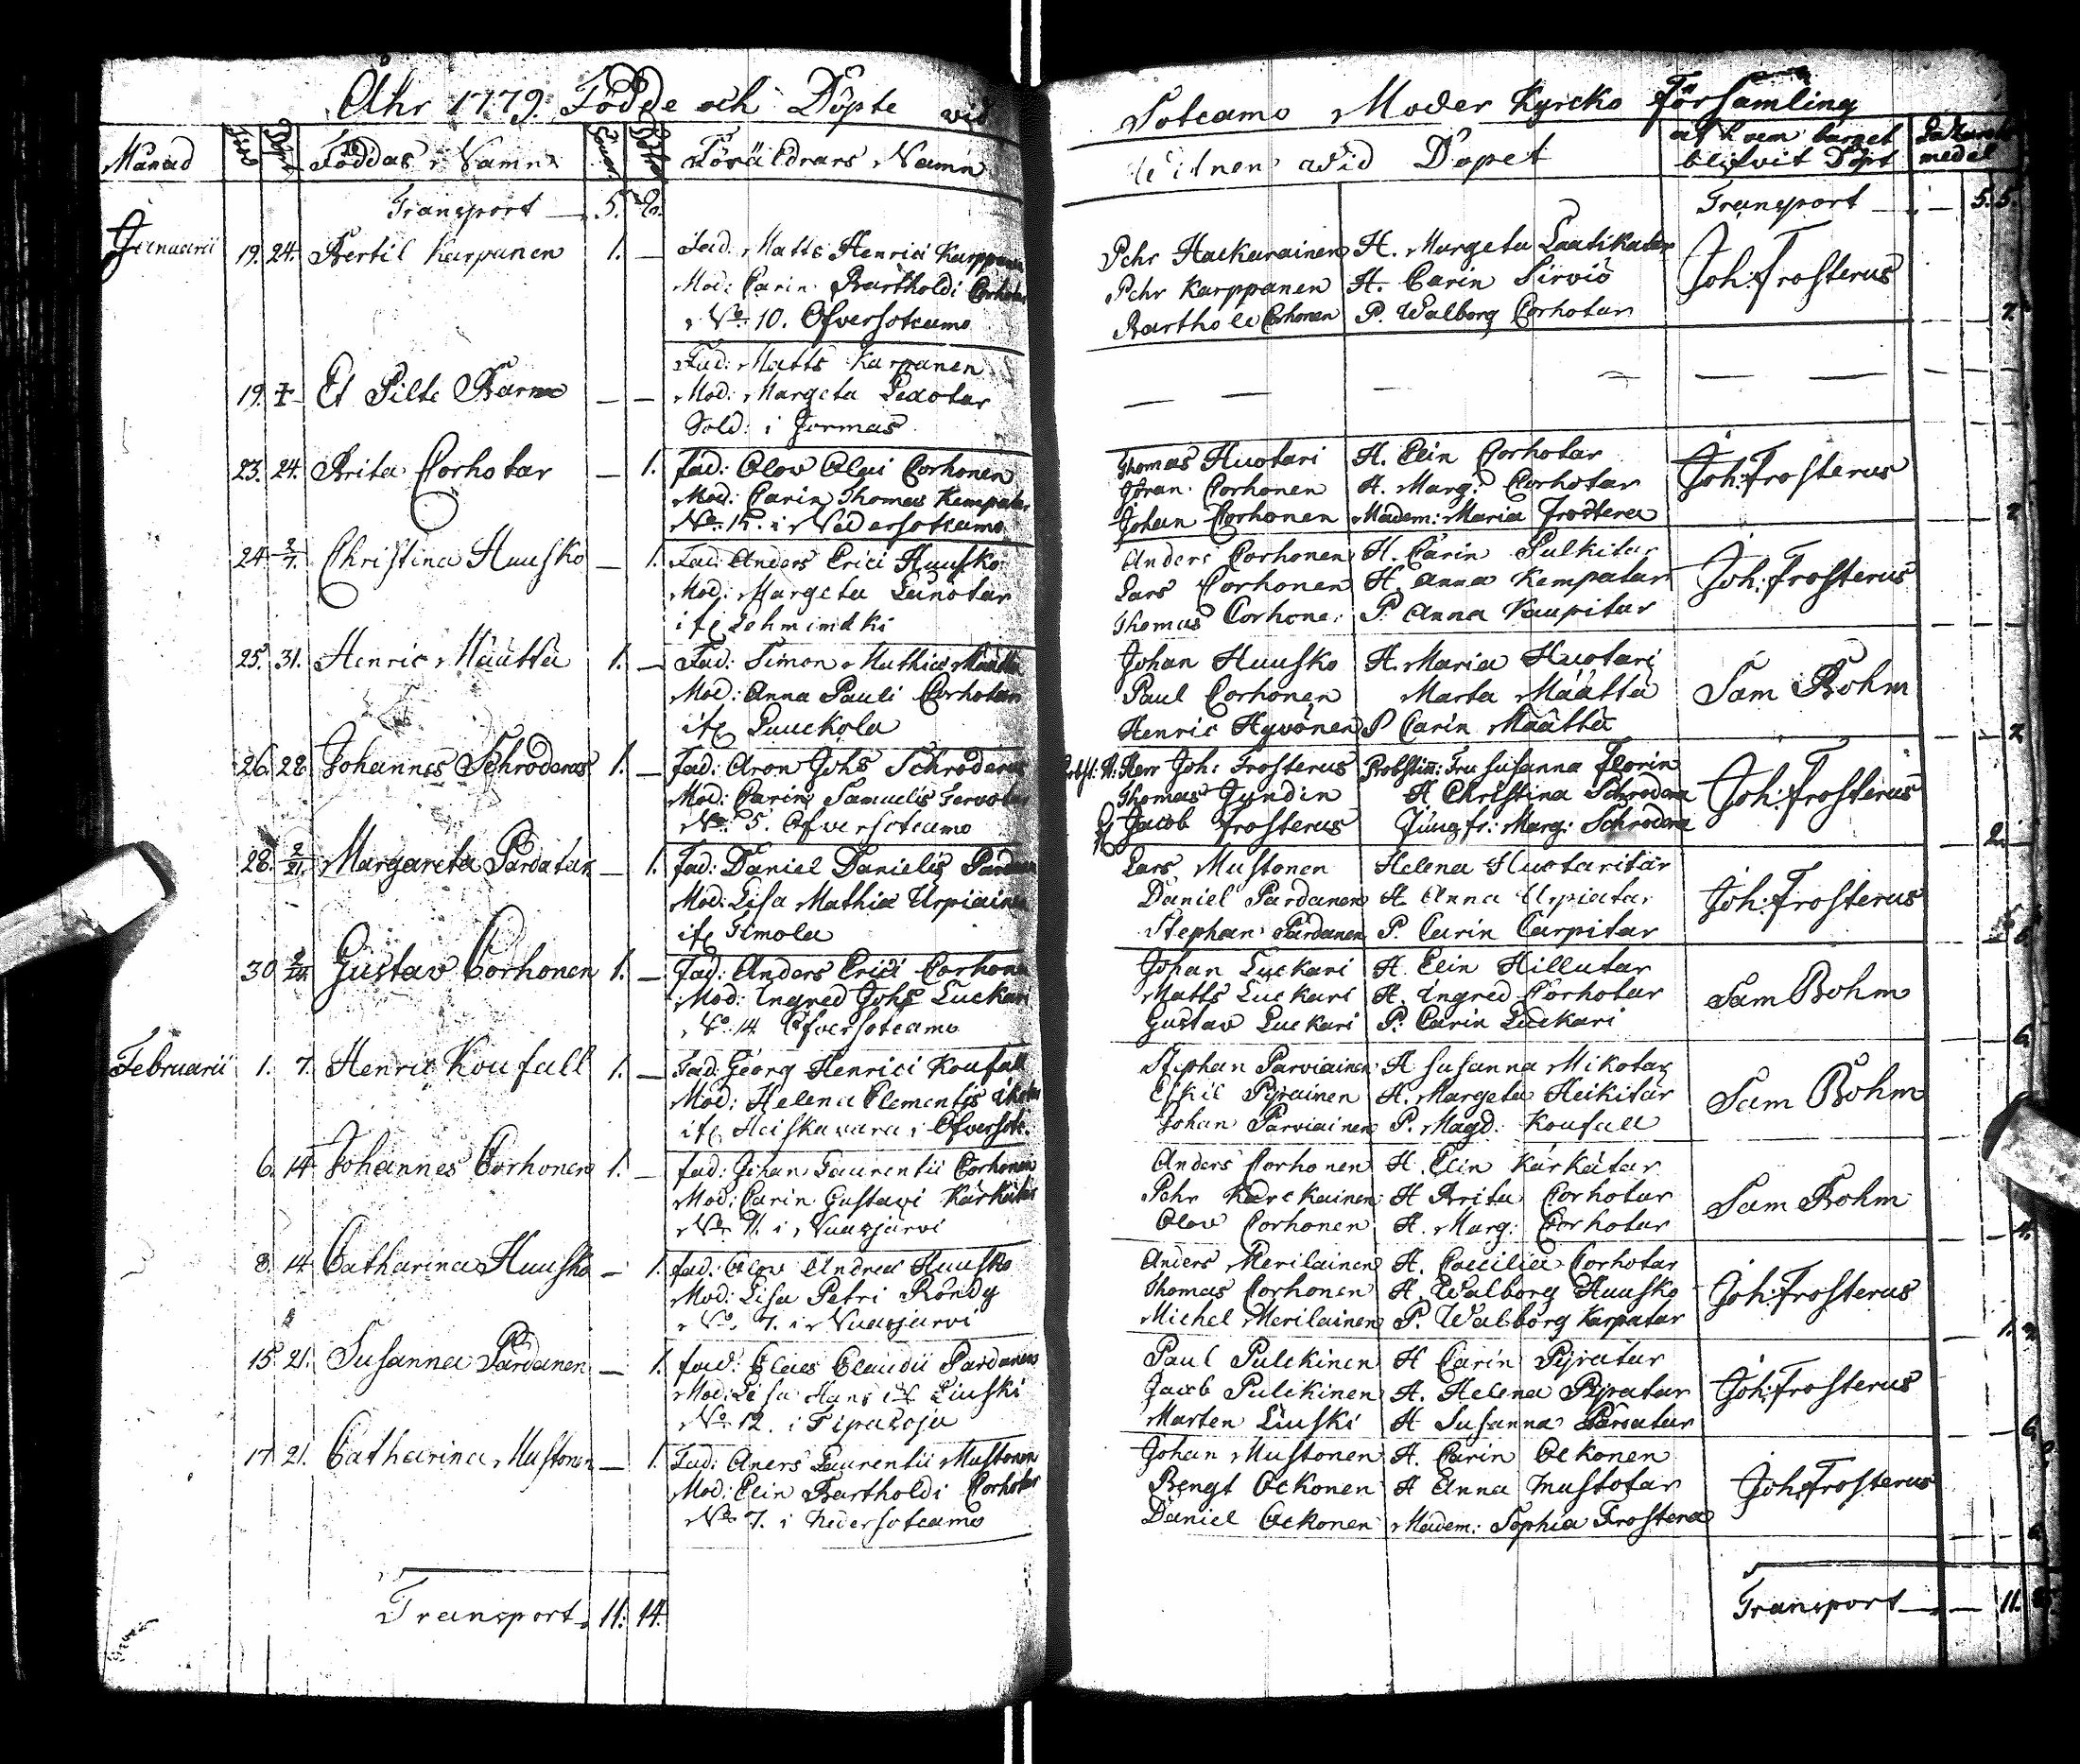 Åhr 1779. Födde och Döpte vid
Månad Född Döpt Föddas Namn Föräldrars Namn
Transport 5.
Januarii 19. 24. Bertil Karpanen 1. — Fad: Matts Henrici Karppanen
Mod: Carin Bartholdi Corhotar
No 10. Öfversotcamo
19. Et Pilte Barn — — Fad: Matts Karpanen
Mod: Margeta
Sold: i Jormas
23. 24. Brita Corhotar — 1. Fad: Olov Olai Corhonen
Mod: Carin Thomas Kempatar
No 12. i Nedersotcamo
24 2/7. Christina Huusko — 1. Fad: Anders Erici Huusko
Mod: Margeta Lunotar
25. 31. Henric Määttä 1. — Fad: Simon Mathiæ Määttä
Mod: Anna Pauli Corhotar
26. 28 Johannes Schroderus 1. — Fad: Aron Johs Schroderus
Mod: Carin Samuelis Tervotar
No 5. Öfversotcamo
28. 2/21. Margareta Pardatar — 1. Fad: Daniel Danielis Pardanen
Mod: Lisa Mathiæ Urpiainen
Timola
30 Gustav Corhonen 1. — Fad: Anders Erici Corhonen
Mod: Ingred Johs Luckari
No 14 Öfversotcamo
Februarii 1. 7. Henric Koufall 1. — Fad: Georg Henrici Koufall
Mod: Helena Clementis
Heiskavara i Öfversotc.
6. 14 Johannes Corhonen 1. — Fad: Johan Laurentii Corhonen
Mod: Carin Gustavi Kärkätar
No 11. i Vuasjärvi
8. 14 Catharina Huusko — 1. Fad: Olov Andreæ Huusko
Mod: Lisa Petri Röndy
No 7. i Vuasjärvi
15. 21. Susanna Pardanen — 1. Fad: Claes Claudii Pardanen
Mod: Lisa Hans Liuski
No 12. i Tipasoja
17. 21. Catharina Mustonen — 1. Fad: Aners Laurentii Mustonen
Mod: Elin Bartholdi Corhotar
No 7. i Nedersotcamo
Transport 11. 14.
Sotcamo Moder Kyrcko Församling
Witnen wid Dopet af hvem barnet
blifvit Döpt
Transport 5. 5.
Pehr Hackarainen H. Margeta Laatikatar Joh: Frosterus
Pehr Karppanen H. Carin Sirviö
Barthold Corhonen P. Walborg Corhotar
Thomas Huotari H. Elin Corhotar Joh: Frosterus
Jöran Corhonen H. Marg: Corhotar
Johan Corhonen Madem: Maria Frostera
Anders Corhonen H. Carin Pulkitar Joh: Frosterus
Lars Corhonen H. Anna Kempatar
Thomas Corhone: P. Anna Kaupitar
Johan Huusko H. Maria Huotari Sam Bohm
Paul Corhonen Marta Määttä
Henric Hyvönen P Carin Määttä
Herr Joh: Frosterus Probstin: Fru Susanna Florin Joh: Frosterus
Thomas Jundin H Christina Schrodera
Jacob Frosterus Jungfr: Marg: Schrodera
Lars Mustonen Helena Huotaritar Joh: Frosterus
Daniel Pardanen H. Anna Urpiatar
Stephan Pardanen P. Carin Carpitar
Johan Luckari H. Elin Hillutar Sam Bohm
Matts Luckari H. Ingred Corhotar
Gustav Luckari P. Carin Luckari
Stephan Parviainen H Susanna Mikotar Sam Bohm
Eskil Pyrainen H. Margeta Heikitar
Johan Parviainen P. Magd: Koufall
Anders Corhonen H. Elin Kärkätar Sam Bohm
Pehr Karckainen H Brita Corhotar
Olov Corhonen H. Marg: Corhotar
Anders Merilainen H. Caecilia Corhotar Joh: Frosterus
Thomas Corhonen H. Walborg Huusko
Michel Merilainen P. Walborg Karpatar
Paul Pulckinen H Carin Pyratar Joh: Frosterus
Jacob Pulckinen H. Helena Pyratar
Marten Liuski H Susanna
Johan Mustonen H. Carin Ockonen Joh: Frosterus
Bengt Ockonen H Anna Mustotar
Daniel Ockonen Madem: Sophia Frostera
Transport 11.